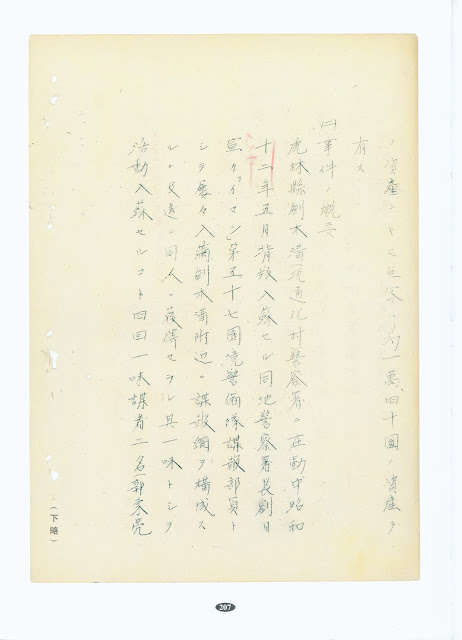 ノ資産ナキモ生家ハ約一萬四十圓ノ資産ヲ
有ス
㈡事件ノ概要
虎林縣刨木溝(現通化村)警察署ニ在勤中昭和
十二年五月背叛入蘇セル同地警察署長劉日
宣カ「イマン」第五十七國境警備隊諜報部員ト
シテ屡々入滿刨木溝附近ニ諜報網ヲ構成ス
ルニ及遂ニ同人ニ獲得セラレ其一味トシテ
活動入蘇セルコト四回一味諜者二名(郭秉亮
(下略)
207